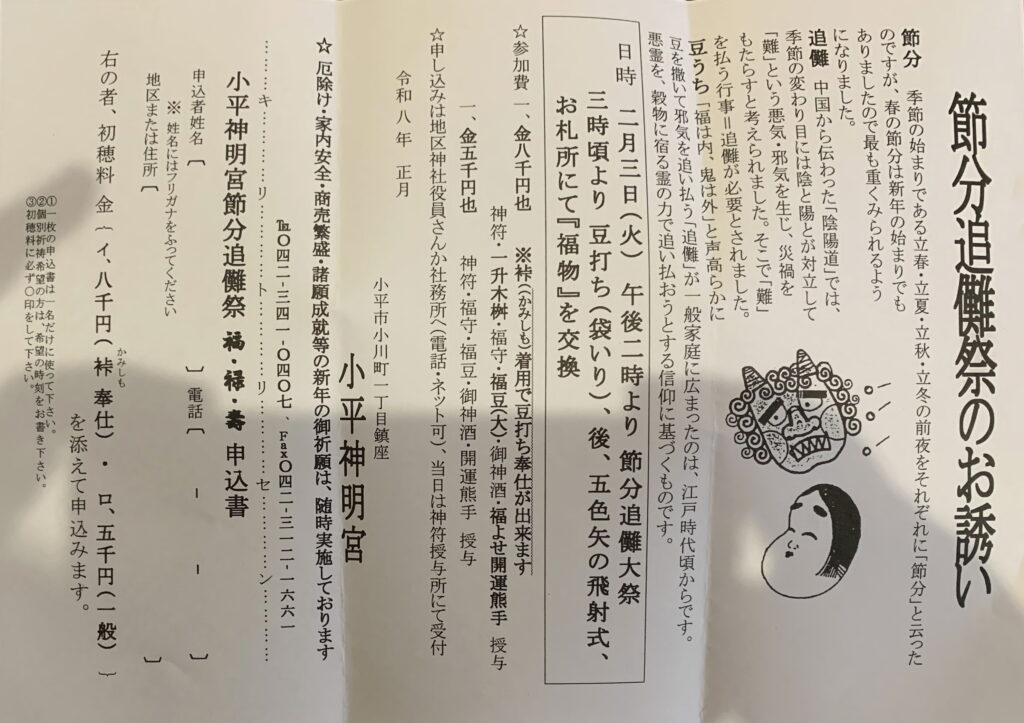 節分追儺祭のお誘い
節分　季節の始まりである立春・立夏・立秋・立冬の前夜をそれぞれに「節分」と云った
のですが、春の節分は新年の始まりでも
ありましたので最も重くみられるよう
になりました。
追儺　中国から伝わった「陰陽道」では、
季節の変わり目には陰と陽とが対立して
「難」という悪気・邪気を生じ、災禍を
もたらすと考えられました。そこで「難」
を払う行事＝追儺が必要とされました。
豆うち「福は内、鬼は外」と声高らかに
豆を撒いて邪気を追い払う「追儺」が一般家庭に広まったのは、江戸時代頃からです。
悪霊を、穀物に宿る霊の力で追い払おうとする信仰に基づくものです。
日時　二月三日（火）　午後二時より　節分追儺大祭
三時頃より　豆打ち（袋いり）、後、五色矢の飛射式、
お札所にて『福物』を交換
☆参加費　一、金八千円也　※裃（かみしも）着用で豆打ち奉仕が出来ます
神符・一升木桝・福守・福豆（大）・御神酒・福よせ開運熊手　授与
一、金五千円也　神符・福守・福豆・御神酒・開運熊手　授与
☆申し込みは地区神社役員さんか社務所へ（電話・ネット可）、当日は神符授与所にて受付
令和八年　正月
小平市小川町一丁目鎮座
小平神明宮
℡０４２－３４１－０４０７、Fax０４２－３１２－１６６１
☆厄除け・家内安全・商売繁盛・諸願成就等の新年の御祈願は、随時実施しております
………キ………リ………ト………リ………セ………ン………
小平神明宮節分追儺祭　福・禄・寿　申込書
※ 姓名にはフリガナをふってください
申込者姓名〔　　　　〕電話〔　　－　　－　　〕
地区または住所〔　　　　〕
右の者、初穂料　金｛イ、八千円（裃 奉仕）・ロ、五千円（一般）｝
かみしも
を添えて申込みます。
①一枚の申込書は一名だけに使って下さい。
②個別祈祷希望の方は、希望の時刻をお書き下さい。
③初穂料に必ず〇印をして下さい。